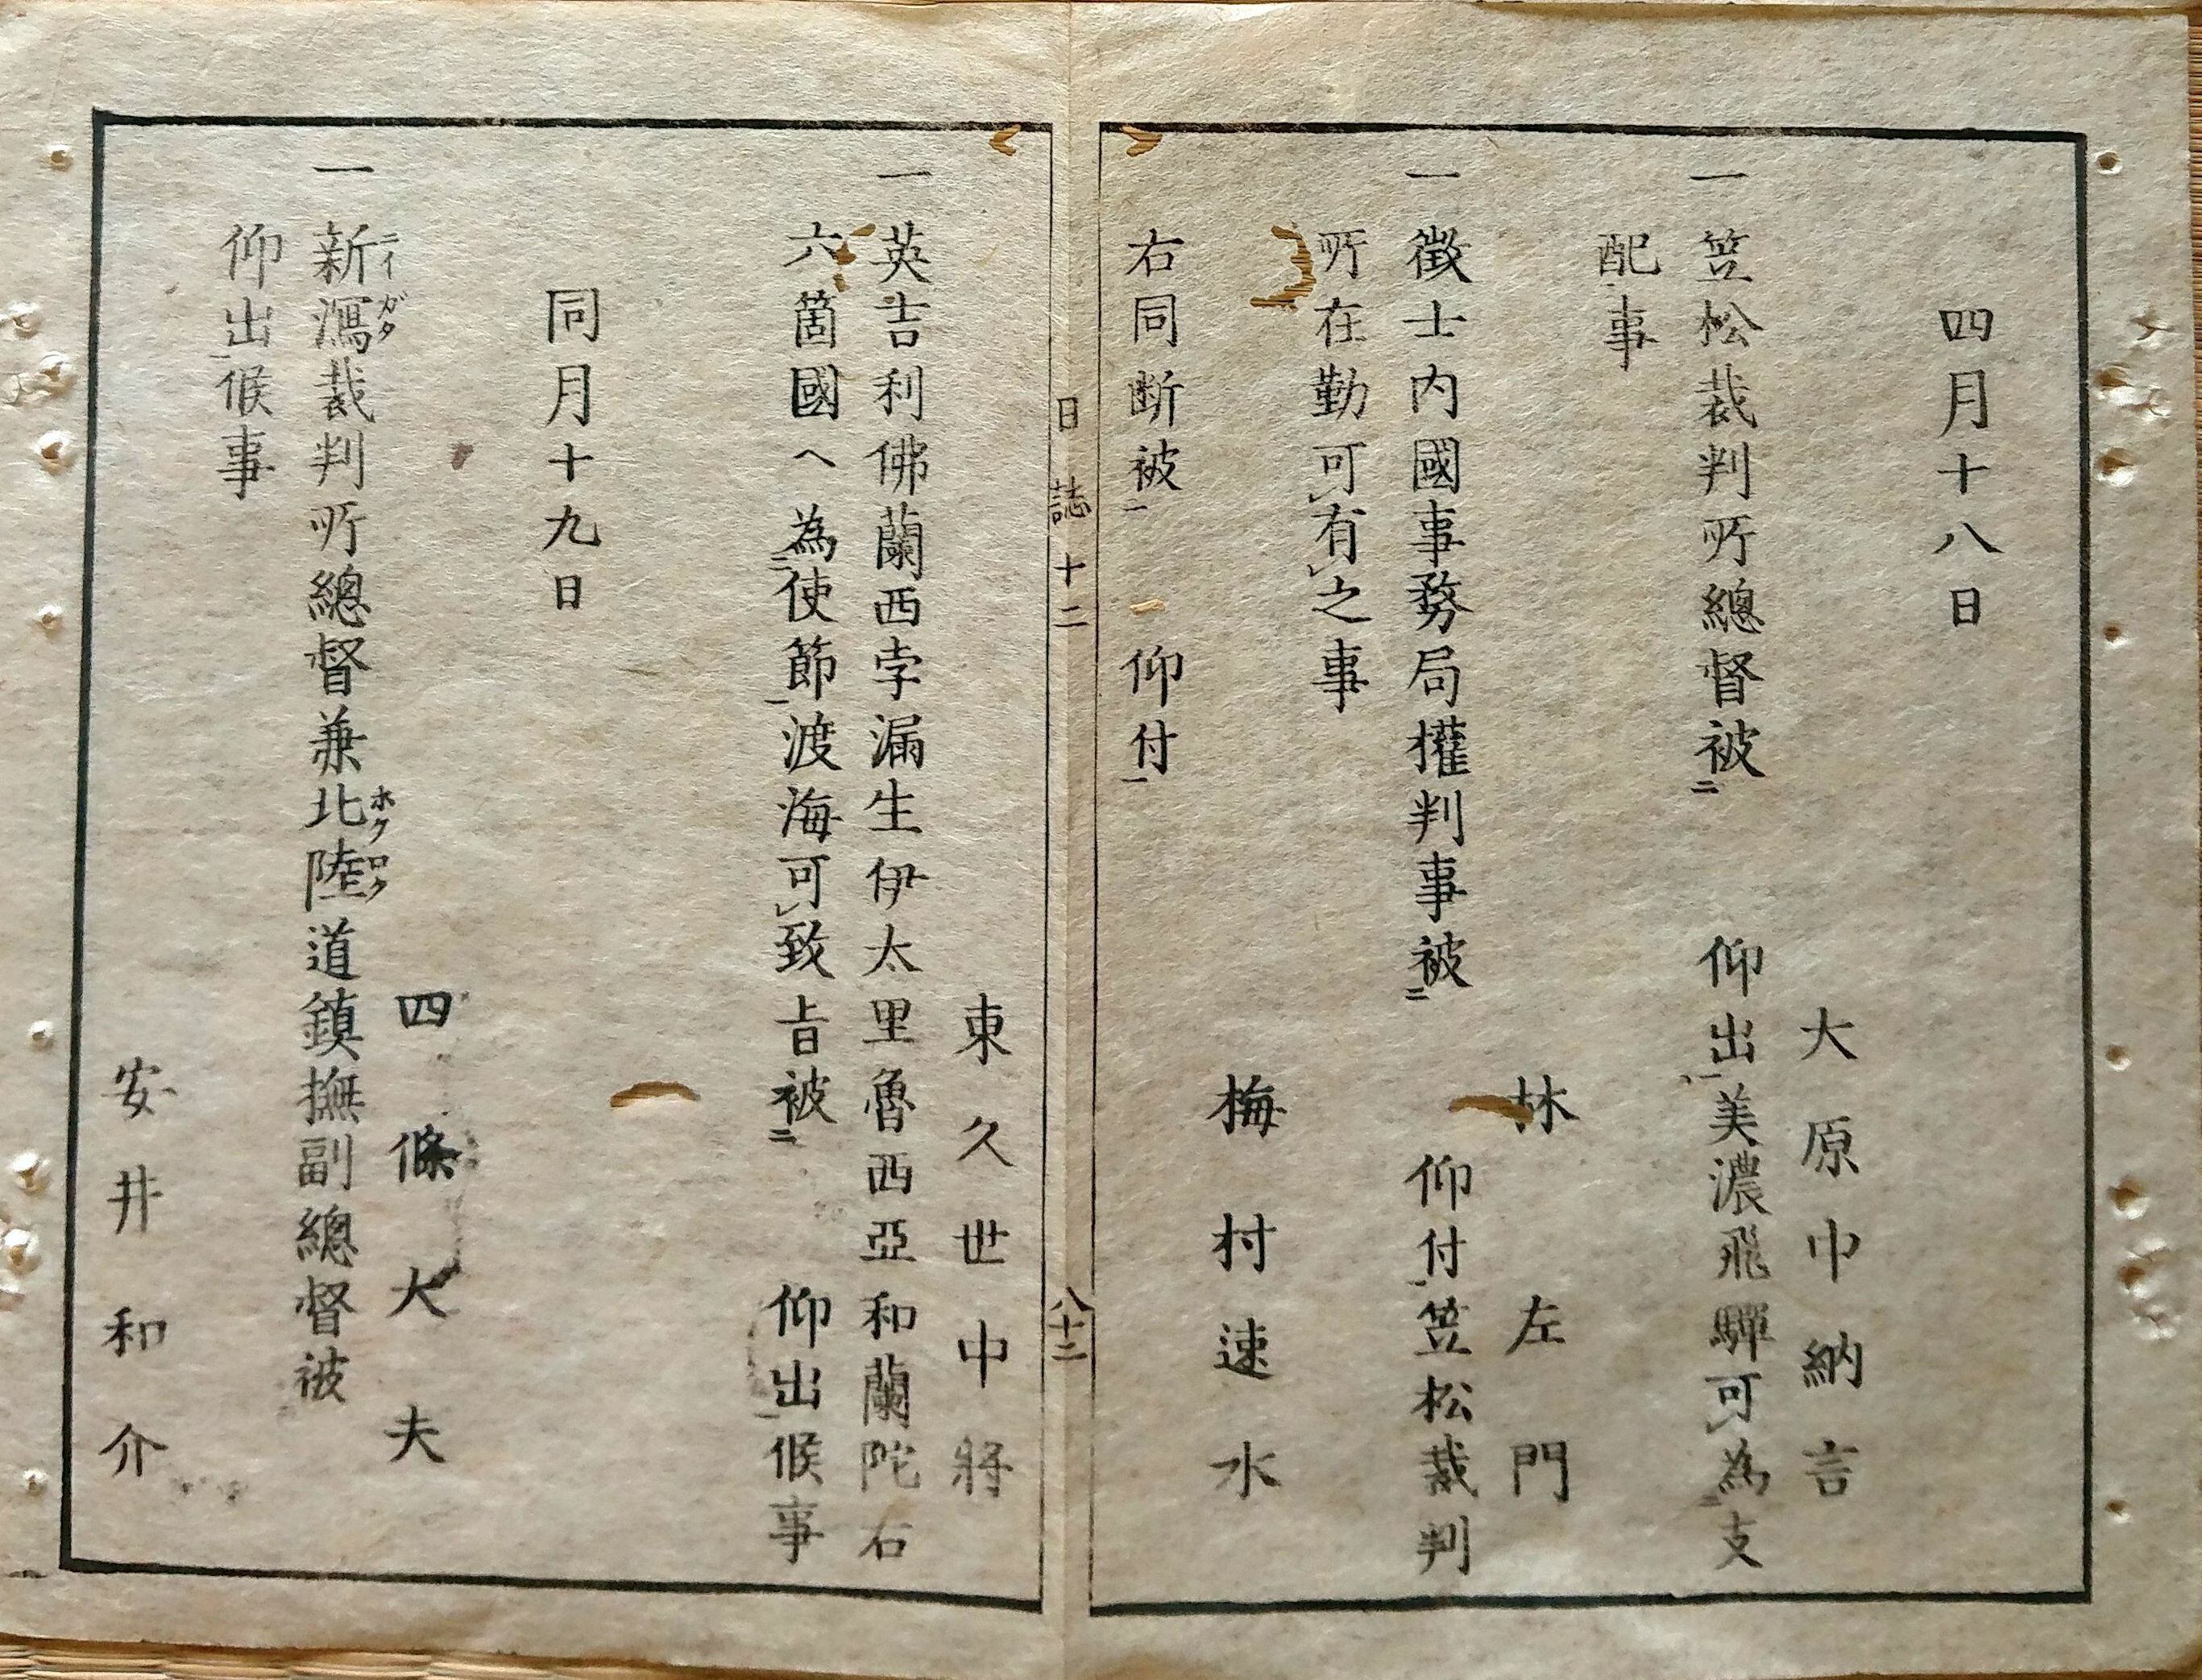 四月十八日
大原中納言
一 笠松裁判所總督被二 仰出一美濃飛驒可レ為二支
配一事
林左門
一 徴士内國事務局權判事被二 仰付一笠松裁判
所在勤可レ有レ之事
梅村速水
右同断被二 仰付一
日誌十二 八十二
東久世中將
一 英吉利佛蘭西孛漏生伊太里魯西亞和蘭陀右
六箇國ヘ為二使節一渡海可レ致旨被二 仰出一候事
同月十九日
四條大夫
一 新潟裁判所總督兼北陸道鎮撫副總督被
ニイガタ ホクロク
仰出一候事
安井和介